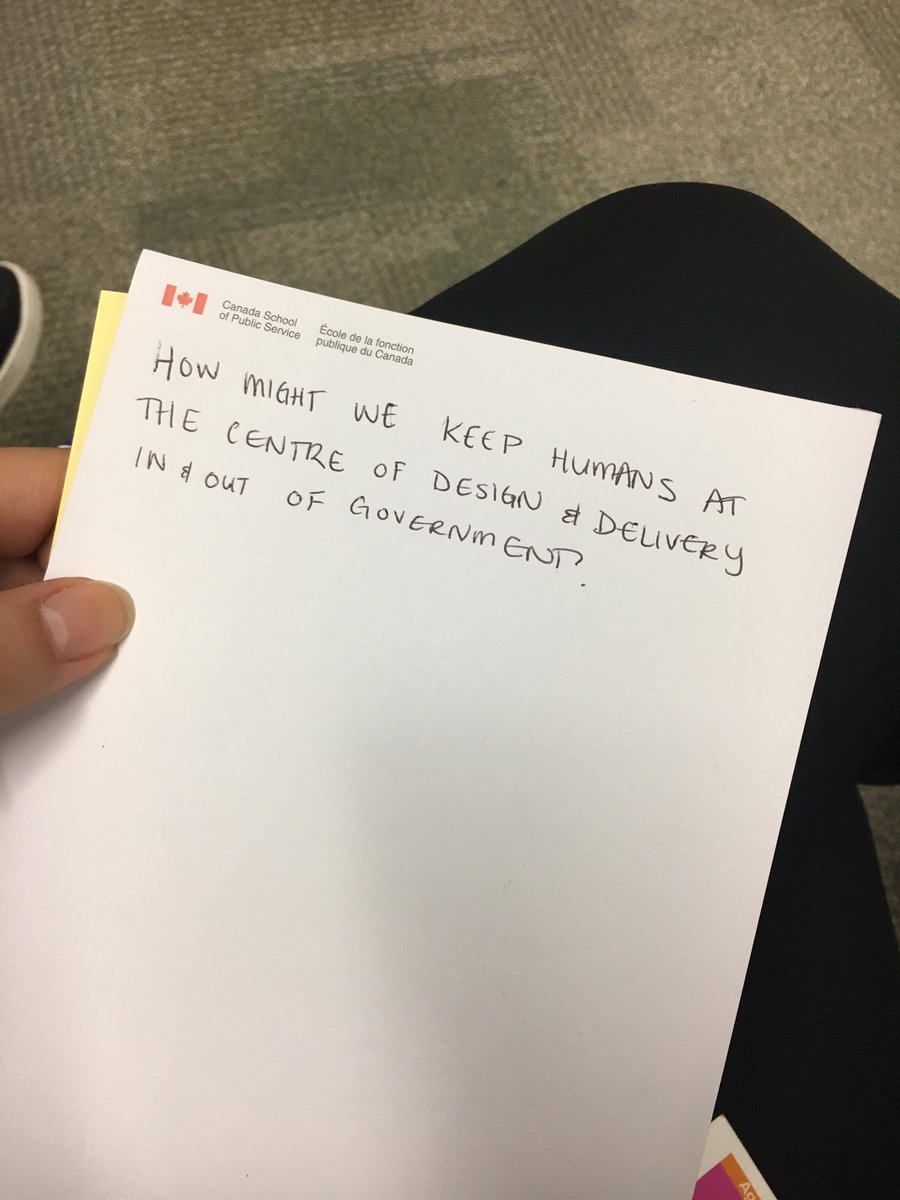 Canada School
of Public Service
École de la fonction
publique du Canada
HOW MIGHT WE KEEP HUMANS AT
THE CENTRE OF DESIGN & DELIVERY
IN & OUT OF GOVERNMENT?